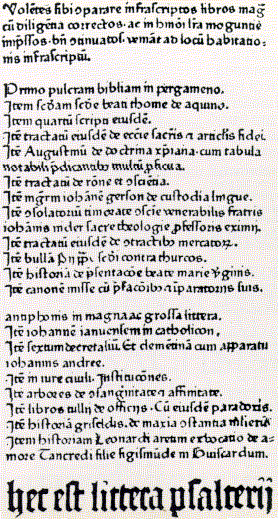 Volẽtes sibi cõparare infrascriptos libros mag̃
cũ diligẽtia correctos. ac in hmõi lr̃a moguntie
impr̃ssos. bñ cõtinuatos. veniãt ad locũ habitatio-
nis infrascriptũ.
Primo pulcram bibliam in pergameno.
Item scd̃am scd̃e beati thome de aquino.
Item quartũ scripti eiusdẽ.
Itẽ tractatũ eiusdẽ de ecc̃ie sacr̃is et articl̃is fidei.
Itẽ Augustinũ de doctrina xp̃iana. cum tabula
notabili p̃dicantibus multũ ꝓficua.
Itẽ tractatũ de rõne et cõsciẽtia.
Itẽ mgr̃m iohãnẽ gerson de custodia lingue.
Itẽ cõsolatoriũ timorate cõscie venerabilis fratris
iohãnis nider sacre theologie ꝓfessoris eximij.
Itẽ tractatũ eiusdẽ de cõtractibꝰ mercatoꝝ.
Itẽ bullã pij pp̃ scd̃i contra thurcos.
Itẽ historiã de p̃sentacõe beate marie ꝟginis.
Itẽ canonẽ misse cũ p̃facõibꝰ et ĩparatorijs suis.
antiphonis in magna ac grossa littera.
Itẽ iohannẽ ianuensem in catholicon.
Itẽ sextum decretaliũ. Et clemẽtinã cum apparatu
iohannis andree.
Itẽ in iure ciuili. Institucõnes.
Itẽ arbores de cõsang̃initate et affinitate.
Itẽ libros tullij de officijs. Cũ eiusdẽ paradoxis.
Itẽ historiã griseldis. de maxia cõstantia mulieris
Item historiam Leonardi aretini ex bocatio de a-
more Tancredi filie sigismũde in Guiscardum.
hec est littera psalterij